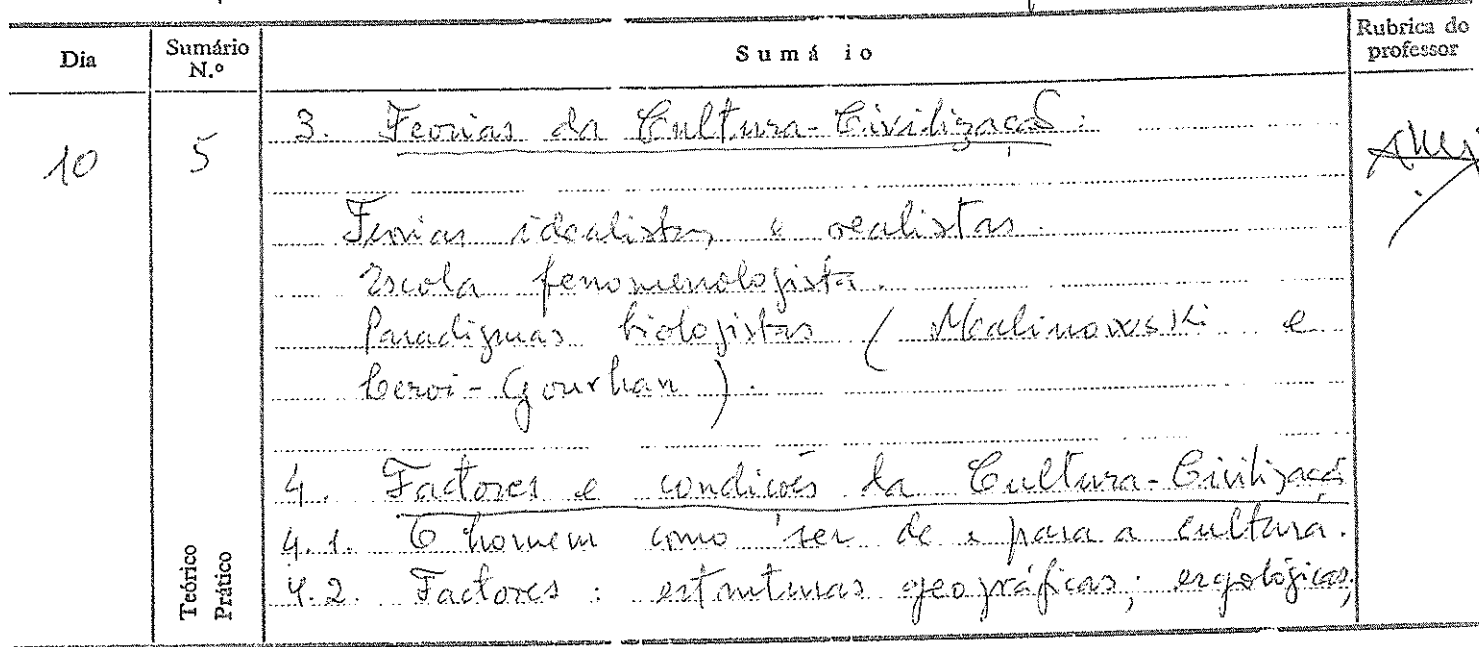 Dia Sumário N.º Sumá io Rubrica do professor
10 5 3. Teorias da Cultura-Civilização:
Teorias idealistas e realistas.
Escola fenomenologista.
Paradigmas biologistas (Malinowski e
Leroi-Gourhan).
4. Factores e condições da Cultura-Civilização
4.1. O homem como ser de e para a cultura.
4.2. Factores: estruturas geográficas; ergológicas;
Teórico
Prático